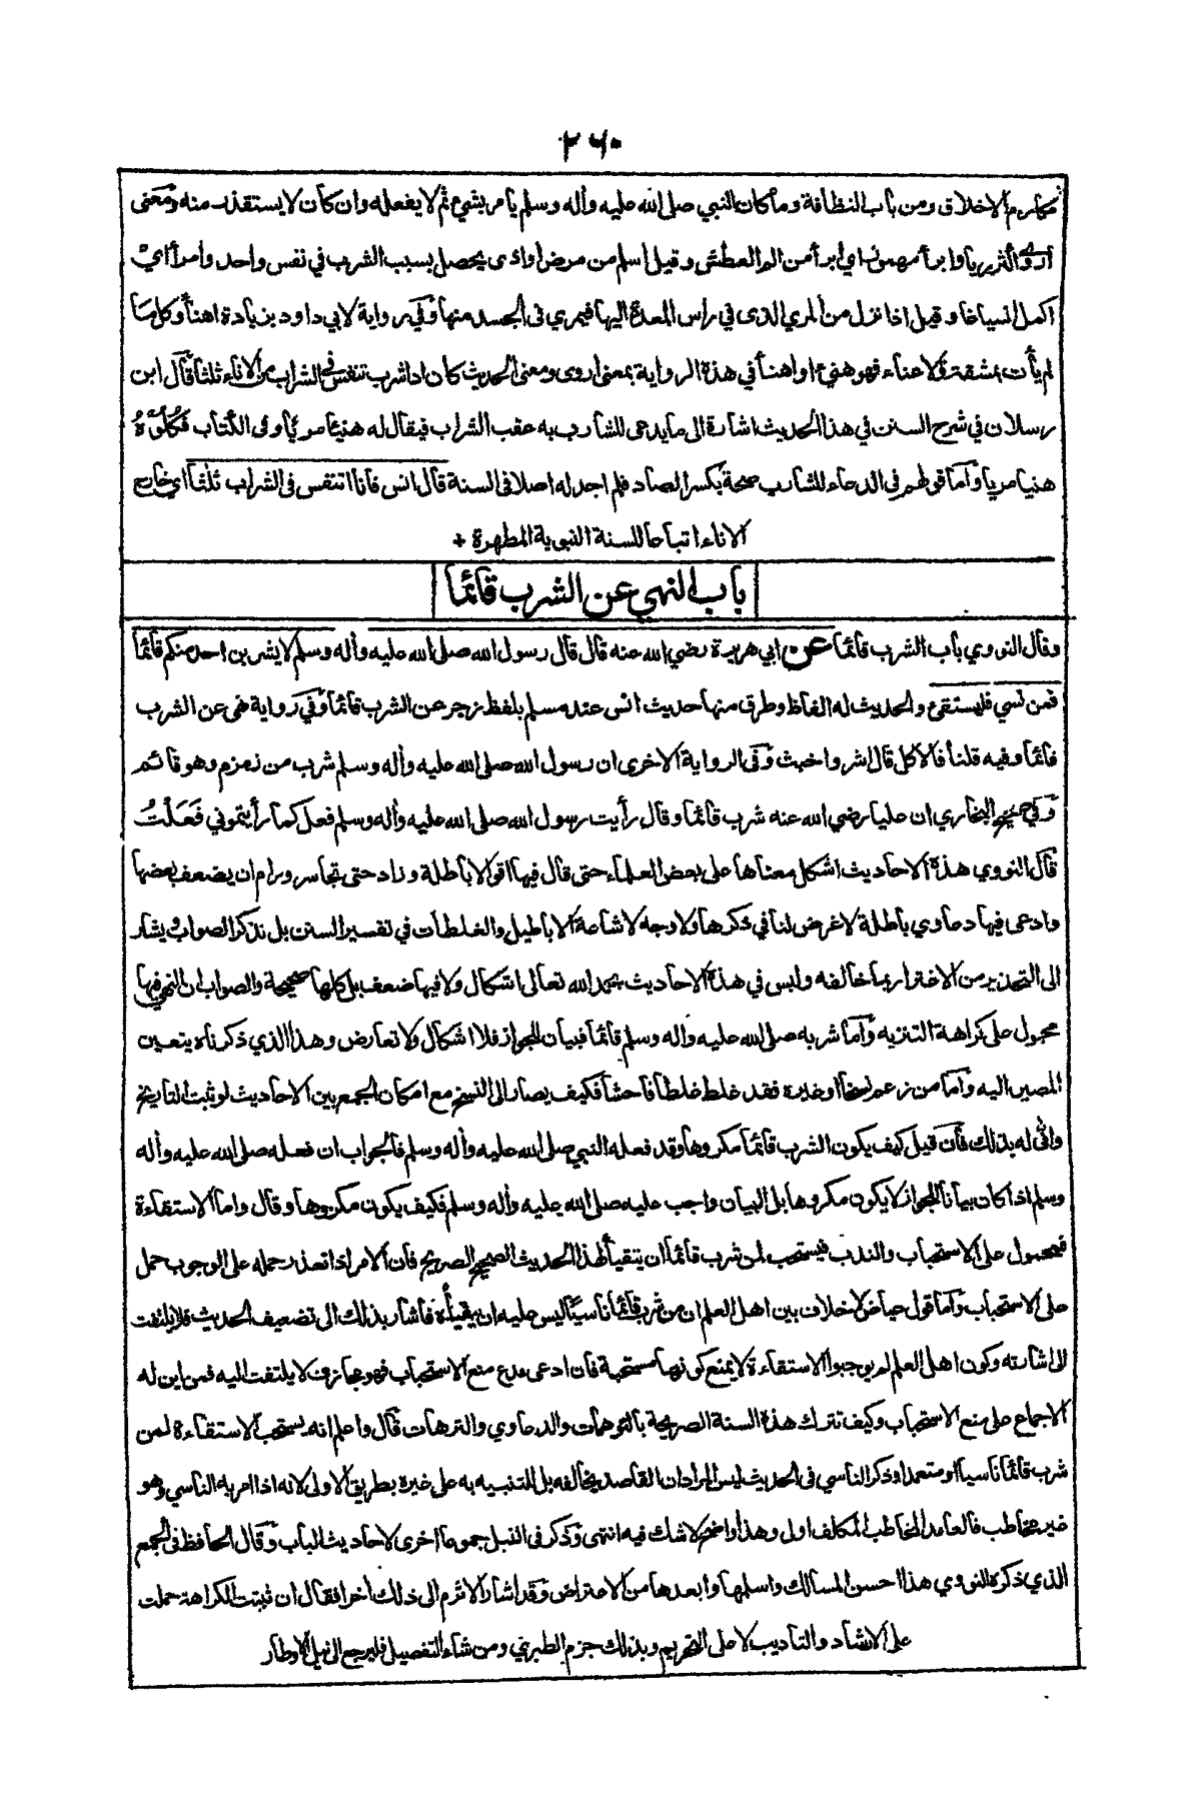 ٢٦٠
مكارم الاخلاق ومن باب النظافة وما كان النبي صلى الله عليه وأله وسلم يأمر بشيء ثم لا يفعله وان كان لا يستقذر منه ومعنى
اروى اكثر ريا وابرأ مهموز اي ابرأ من الم العطش وقيل اسلم من مرض او اذى يحصل بسبب الشرب في نفس واحد وامرأ اي
اكمل انسياغا وقيل اذا نزل من المري الذي في رأس المعدة اليها فيمري في الجسد منها وفي رواية لابي داود بزيادة اهنأ وكل ما
لم يأت بمشقة ولا عناء فهو هنيء او اهنأ في هذه الرواية بمعنى اروى ومعنى الحديث كان اذا شرب تنفس في الشراب من الاناء ثلثا قال ابن
رسلان في شرح السنن في هذا الحديث اشارة الى ما يدعى للشارب به عقب الشراب فيقال له هنيئا مريئا وفي الكتاب فكلوه
هنيا مريا وأما قولهم في الدعاء للشارب صحة بكسر الصاد فلم اجد له اصلا في السنة قال انس فأنا اتنفس في الشراب ثلثا اي خارج
الاناء اتباعا للسنة النبوية المطهرة +
باب النهي عن الشرب قائما
وقال النووي باب الشرب قائما عن ابي هريرة رضي الله عنه قال قال رسول الله صلى الله عليه وأله وسلم لا يشربن احد منكم قائما
فمن نسي فليستقئ والحديث له الفاظ وطرق منها حديث انس عند مسلم بلفظ زجر عن الشرب قائما وفي رواية نهى عن الشرب
قائما وفيه قلنا فالاكل قال اشر واخبث وفي الرواية الاخرى ان رسول الله صلى الله عليه وأله وسلم شرب من زمزم وهو قائم
وفي صحيح البخاري ان عليا رضي الله عنه شرب قائما وقال رأيت رسول الله صلى الله عليه وأله وسلم فعل كما رأيتموني فعلت
قال النووي هذه الاحاديث اشكل معناها على بعض العلماء حتى قال فيها اقوالا باطلة وزاد حتى تجاسر ورام ان يضعف بعضها
وادعى فيها دعاوي باطلة لا غرض لنا في ذكرها ولا وجه لاشاعة الاباطيل والغلطات في تفسير السنن بل نذكر الصواب ويشار
الى التحذير من الاغترار بما خالفه وليس في هذه الاحاديث بحمد الله تعالى اشكال ولا فيها ضعف بل كلها صحيحة والصواب ان النهي فيها
محمول على كراهة التنزيه وأما شربه صلى الله عليه وأله وسلم قائما فبيان للجواز فلا اشكال ولا تعارض وهذا الذي ذكرناه يتعين
المصير اليه وأما من زعم نسخا او غيره فقد غلط غلطا فاحشا فكيف يصار الى النسخ مع امكان الجمع بين الاحاديث لو ثبت التاريخ
وانى له بذلك فأن قيل كيف يكون الشرب قائما مكروها وقد فعله النبي صلى الله عليه وأله وسلم فالجواب ان فعله صلى الله عليه وأله
وسلم اذا كان بيانا للجواز لا يكون مكروها بل البيان واجب عليه صلى الله عليه وأله وسلم فكيف يكون مكروها وقال واما الاستقاءة
فمحمول على الاستحباب والندب فيستحب لمن شرب قائما ان يتقيأ لهذا الحديث الصحيح الصريح فأن الامر اذا تعذر حمله على الوجوب حمل
على الاستحباب وأما قول عياض لا خلاف بين اهل العلم ان من شرب قائما ناسيا ليس عليه ان يتقيأه فأشار بذلك الى تضعيف الحديث فلا يلتفت
الى اشارته وكون اهل العلم لم يوجبوا الاستقاءة لا يمنع كونها مستحبة فان ادعى مدع منع الاستحباب فهو مجازف لا يلتفت اليه فمن اين له
الاجماع على منع الاستحباب وكيف تترك هذه السنة الصريحة بالتوهمات والدعاوي والترهات قال واعلم انه يستحب الاستقاءة لمن
شرب قائما ناسيا او متعمدا وذكر الناسي في الحديث ليس المراد ان القاصد يخالفه بل للتنبيه به على غيره بطريق الاولى لانه اذا امر به الناسي وهو
غير مخاطب فالعامد المخاطب المكلف اولى وهذا واضح لا شك فيه انتهى وذكر في النيل جموعا اخرى لاحاديث الباب وقال الحافظ في الجمع
الذي ذكره النووي هذا احسن المسالك واسلمها وأبعدها من الاعتراض وقد اشار الاثرم الى ذلك أخرا فقال ان ثبتت الكراهة حملت
على الارشاد والتأديب لا على التحريم وبذلك جزم الطبري ومن شاء التفصيل فليرجع الى نيل الاوطار